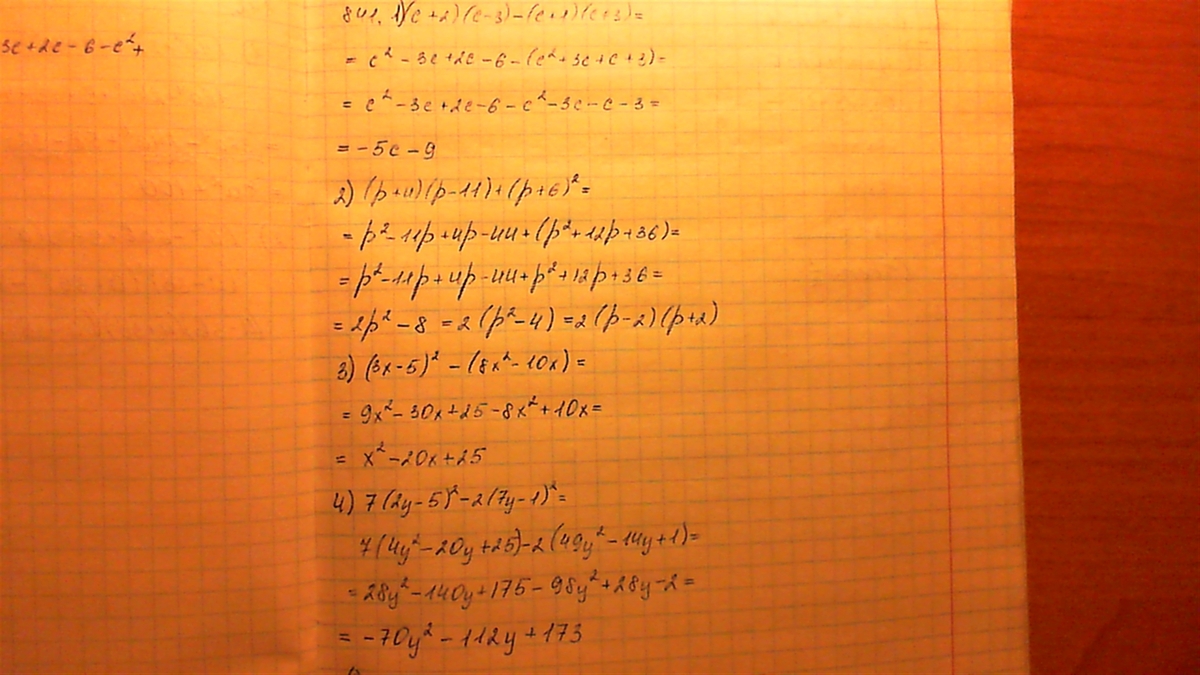 3c+2c-6-c²+
841. 1)(c+2)(c-3)-(c+1)(c+3)=
= c² -3c+2c-6-(c²+3c+c+3)=
= c²-3c+2c-6-c²-3c-c-3=
= -5c-9
2) (p+4)(p-11)+(p+6)²=
= p²-11p+4p-44+(p²+12p+36)=
= p²-11p+4p-44+p²+12p+36=
= 2p²-8 = 2(p²-4) = 2(p-2)(p+2)
3) (3x-5)² - (8x²-10x)=
= 9x²-30x+25-8x²+10x=
= x²-20x+25
4) 7(2y-5)²-2(7y-1)²=
7(4y²-20y+25)-2(49y²-14y+1)=
= 28y²-140y+175-98y²+28y-2=
= -70y²-112y+173